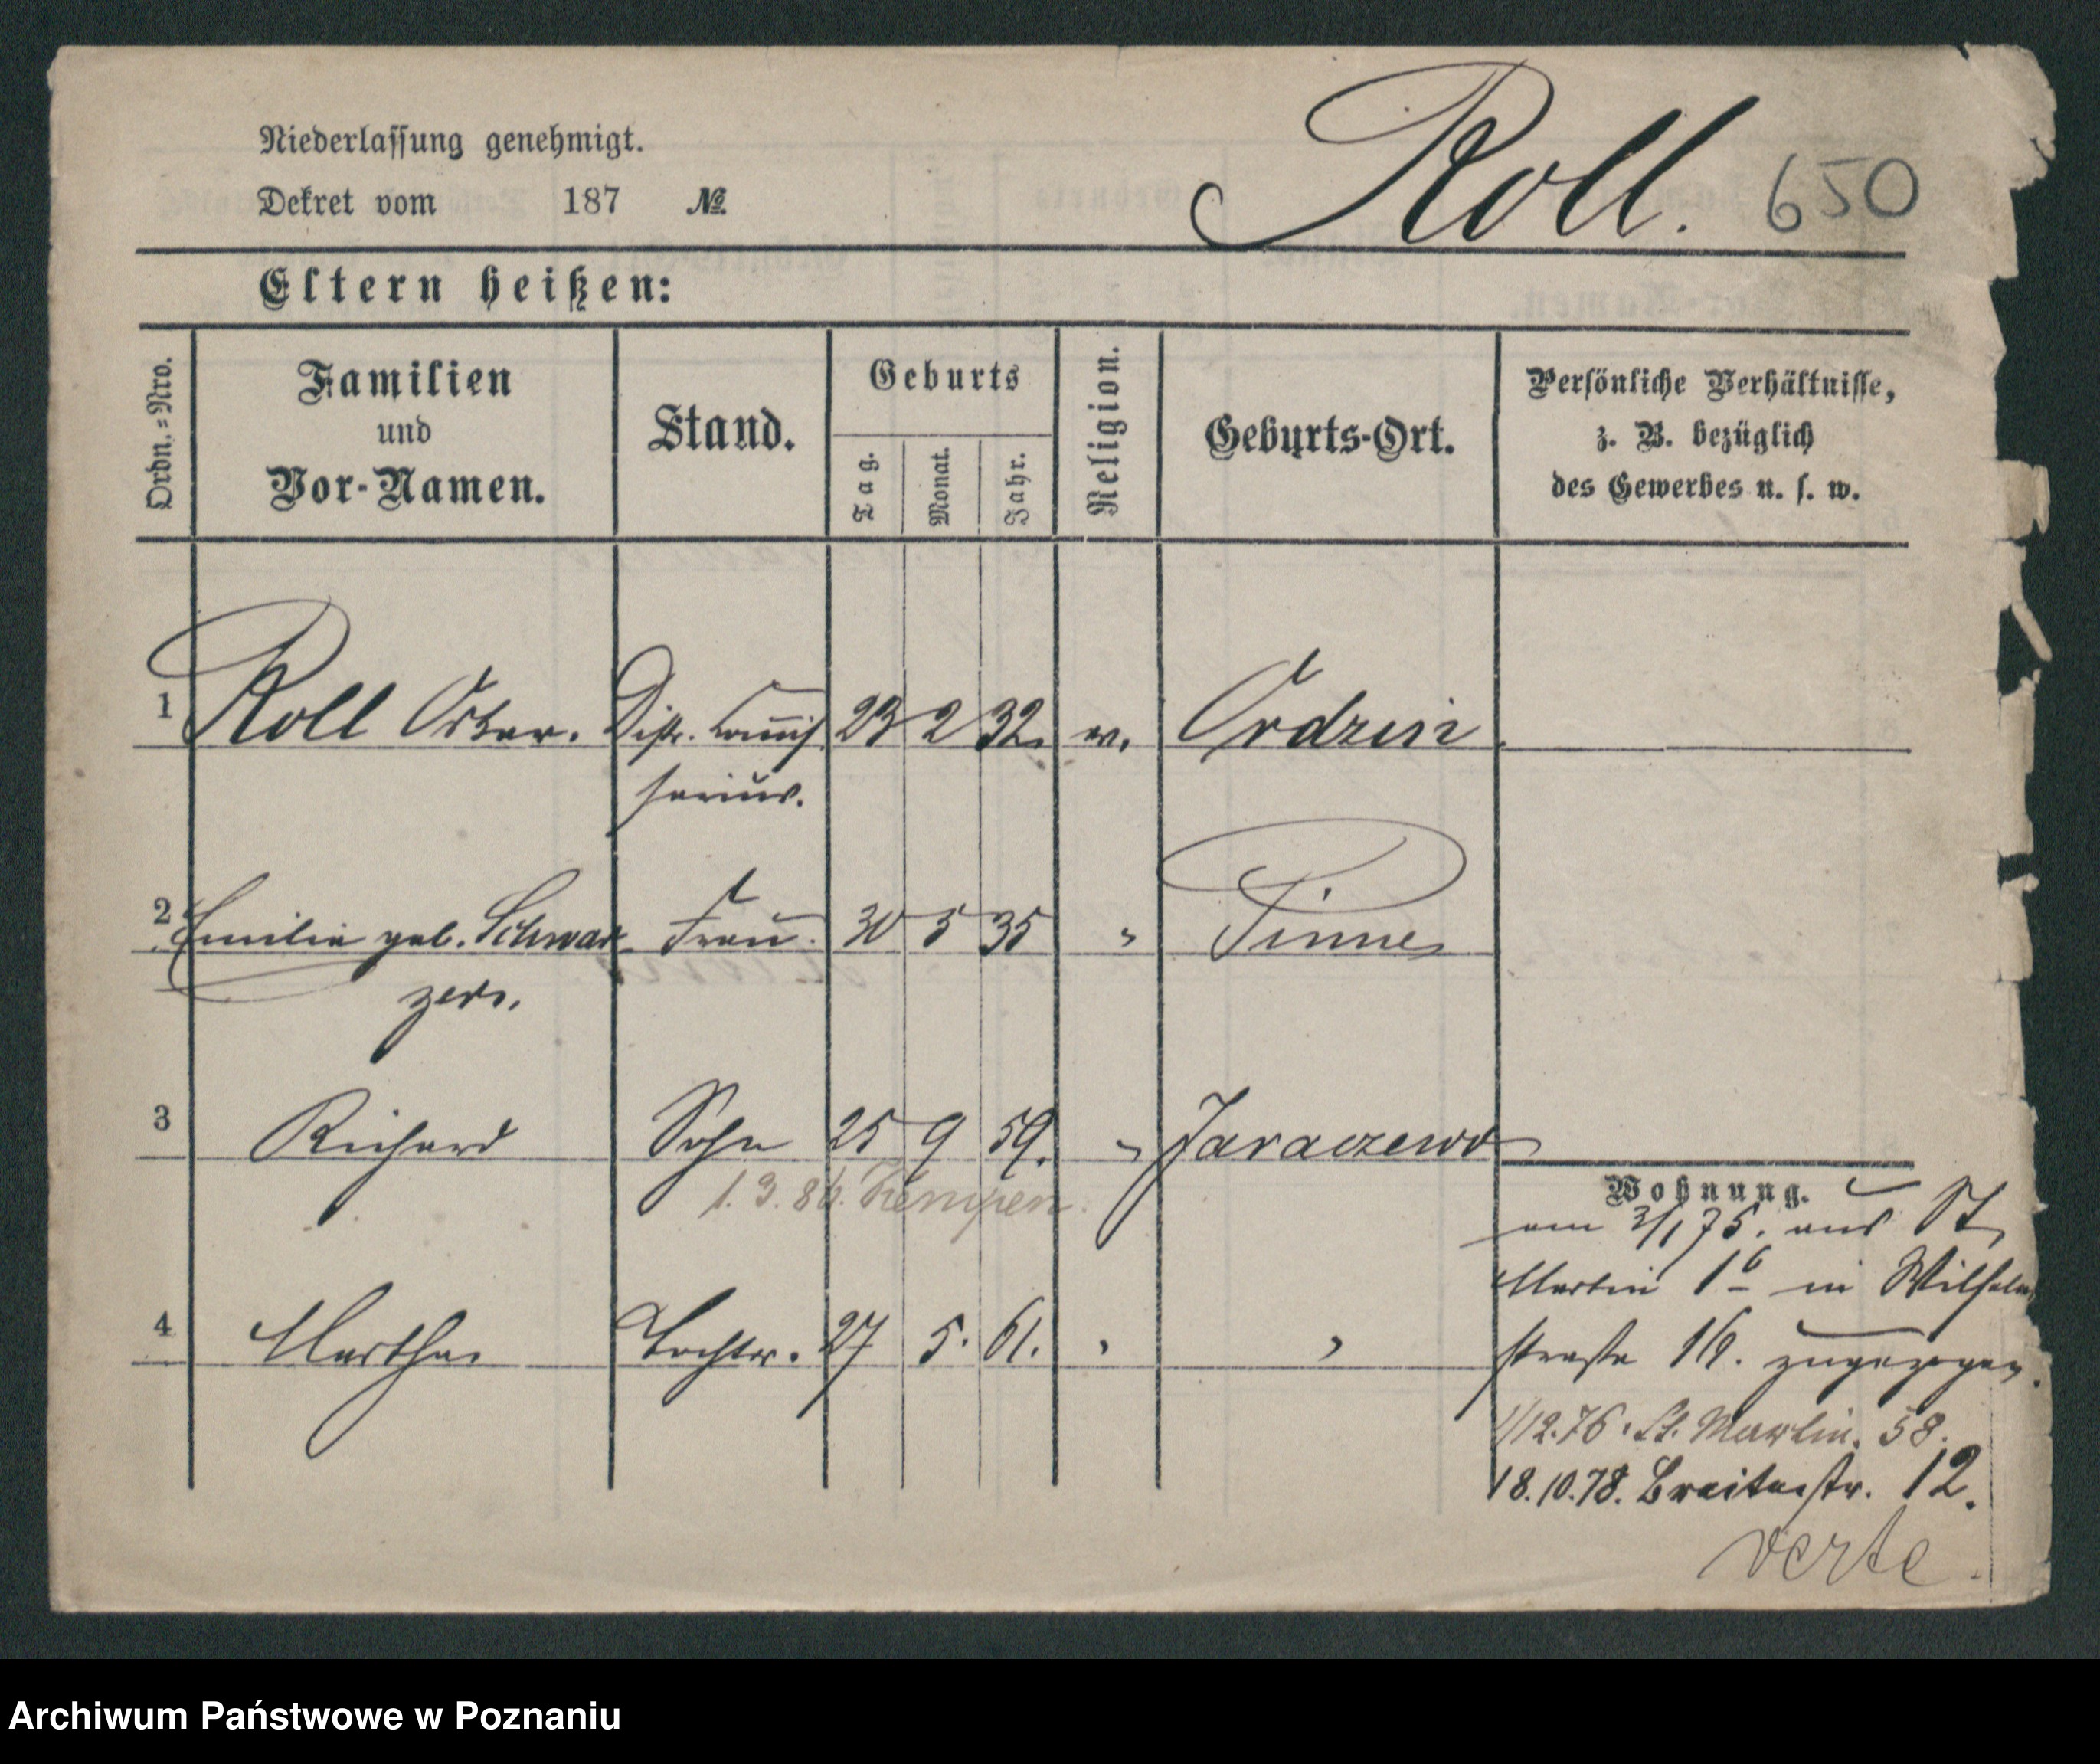 Niederlassung genehmigt.
Dekret vom 187 №
Roll. 650
Eltern heißen:
Ordn.=Nro.
Familien
und
Vor-Namen.
Stand.
Geburts
Tag.
Monat.
Jahr.
Religion.
Geburts-Ort.
Persönliche Verhältnisse,
z. B. bezüglich
des Gewerbes u. s. w.
1 Roll Oskar. Distr. Com̄is 23 2 32. ev. Ordzin
sarius.
2 Emilie geb. Schwar Frau. 30 5 35 " Pinne
zer.
3 Richard Sohn 25 9 59. " Jaraczewo
1. 3. 86. Kempen.
4 Martha Tochter. 27 5. 61. " "
Wohnung.
am 3/1 75. aus St
Martin 1 6 in Wilhelm
straße 16. zugezogen.
1/12.76. St. Martin. 58.
18.10.78. Breitestr. 12.
verte.
Archiwum Państwowe w Poznaniu